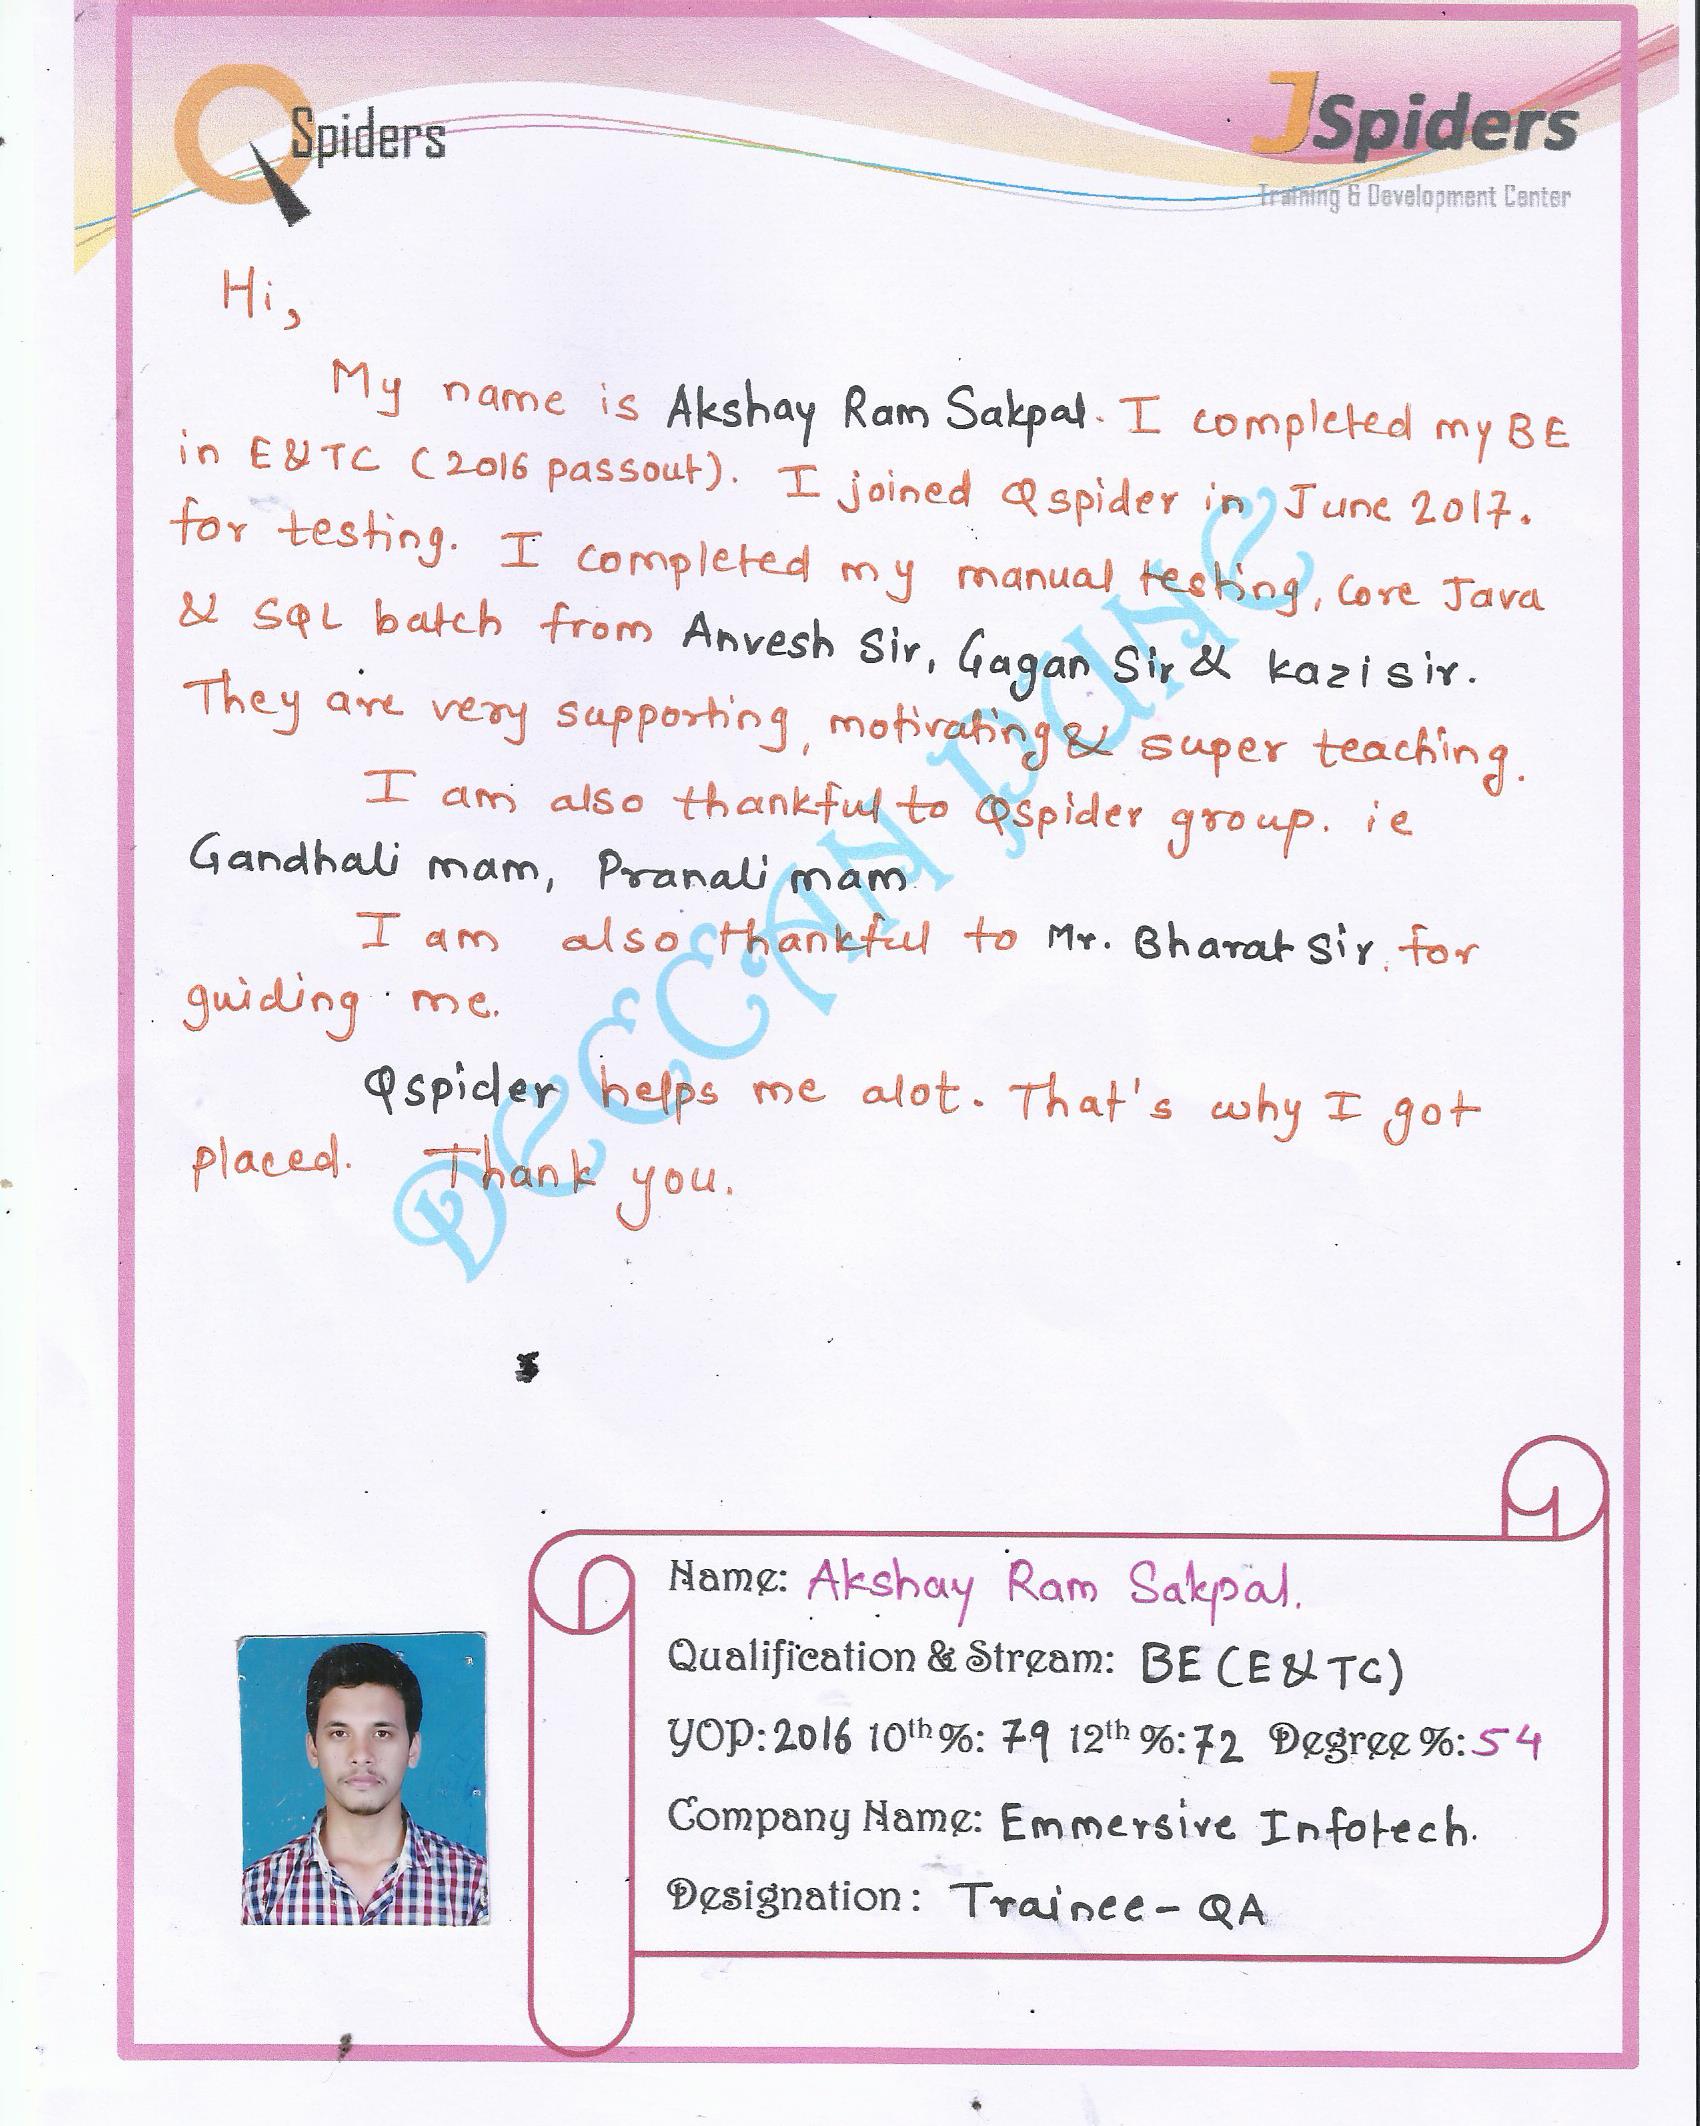 QSpiders
JSpiders
Training & Development Center
Hi,
My name is Akshay Ram Sakpal. I completed my BE
in E&TC (2016 passout). I joined Qspider in June 2017.
for testing. I completed my manual testing, Core Java
& SQL batch from Anvesh Sir, Gagan Sir & Kazi sir.
They are very supporting, motivating & super teaching.
I am also thankful to Qspider group. ie
Gandhali mam, Pranali mam
I am also thankful to Mr. Bharat Sir. for
guiding me.
Qspider helps me alot. That's why I got
placed. Thank you.
DECCAN PUNE
Name: Akshay Ram Sakpal.
Qualification & Stream: BE (E&TC)
YOP: 2016 10th %: 79 12th %: 72 Degree %: 54
Company Name: Emmersive Infotech.
Designation: Trainee - QA